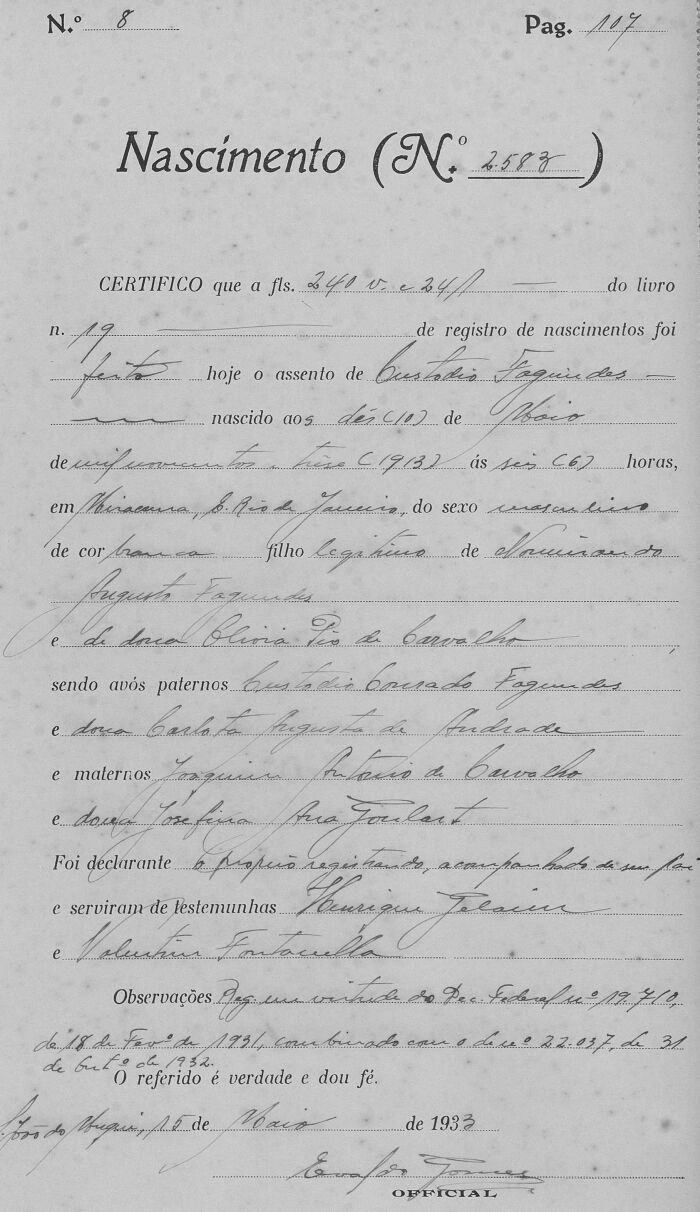 N.º 8 Pag. 107
Nascimento (N.º 2583)
CERTIFICO que a fls. 240 v. e 241 — do livro
n. 19 — de registro de nascimentos foi
feito hoje o assento de Custodio Fagundes —
— nascido aos dés (10) de Maio
de mil novecentos e trese (1913) ás seis (6) horas,
em Miracema, E. Rio de Janeiro, do sexo masculino
de cor branca filho legitimo de Normirando
Augusto Fagundes
e de dona Olivia Pio de Carvalho
sendo avós paternos Custodio Conrado Fagundes
e dona Carlota Augusta de Andrade
e maternos Joaquim Antonio de Carvalho
e dona Josefina Ana Goulart
Foi declarante o proprio registrando, acompanhado de seu pai
e serviram de testemunhas Henrique
e Valentim Fontanella
Observações Reg. em virtude do Dec. Federal nº 19.710,
de 18 de Fevº de 1931, combinado com o de nº 22.037, de 31
de Outº de 1932.
O referido é verdade e dou fé.
S. João do Muqui, 15 de Maio de 1933
Evaldo Gomes
OFFICIAL